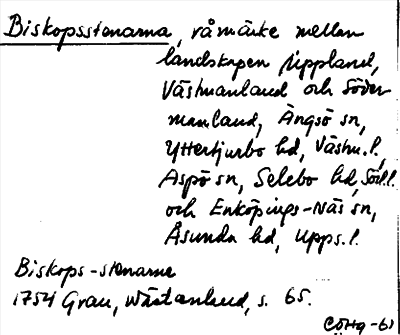 Biskopsstenarna, råmärke mellan
landskapen Uppland,
Västmanland och Söder
manland, Ängsö sn,
Yttertjurbo hd, Västm.l.,
Aspö sn, Selebo hd, Söd.l.
och Enköpings-Näs sn,
Åsunda hd, Upps.l.
Biskops-stenarne
1754 Grau, Wästanland, s. 65.
CÖHg-61